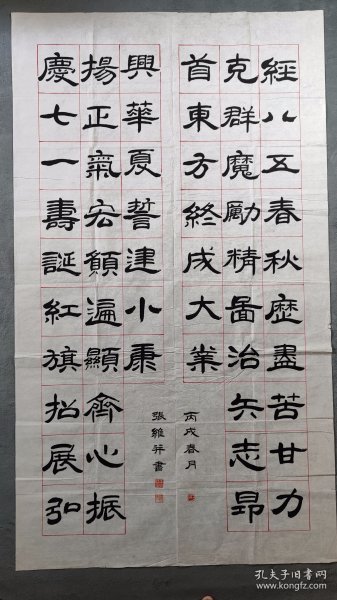 經八五春秋歷盡苦甘力
克群魔勵精啚治矢志昂
首東方終成大業
丙戌春月
慶七一壽誕紅旗招展弘
揚正氣宏願遍顯齊心振
興華夏誓建小康
張維書
孔夫子旧书网
kongfz.com